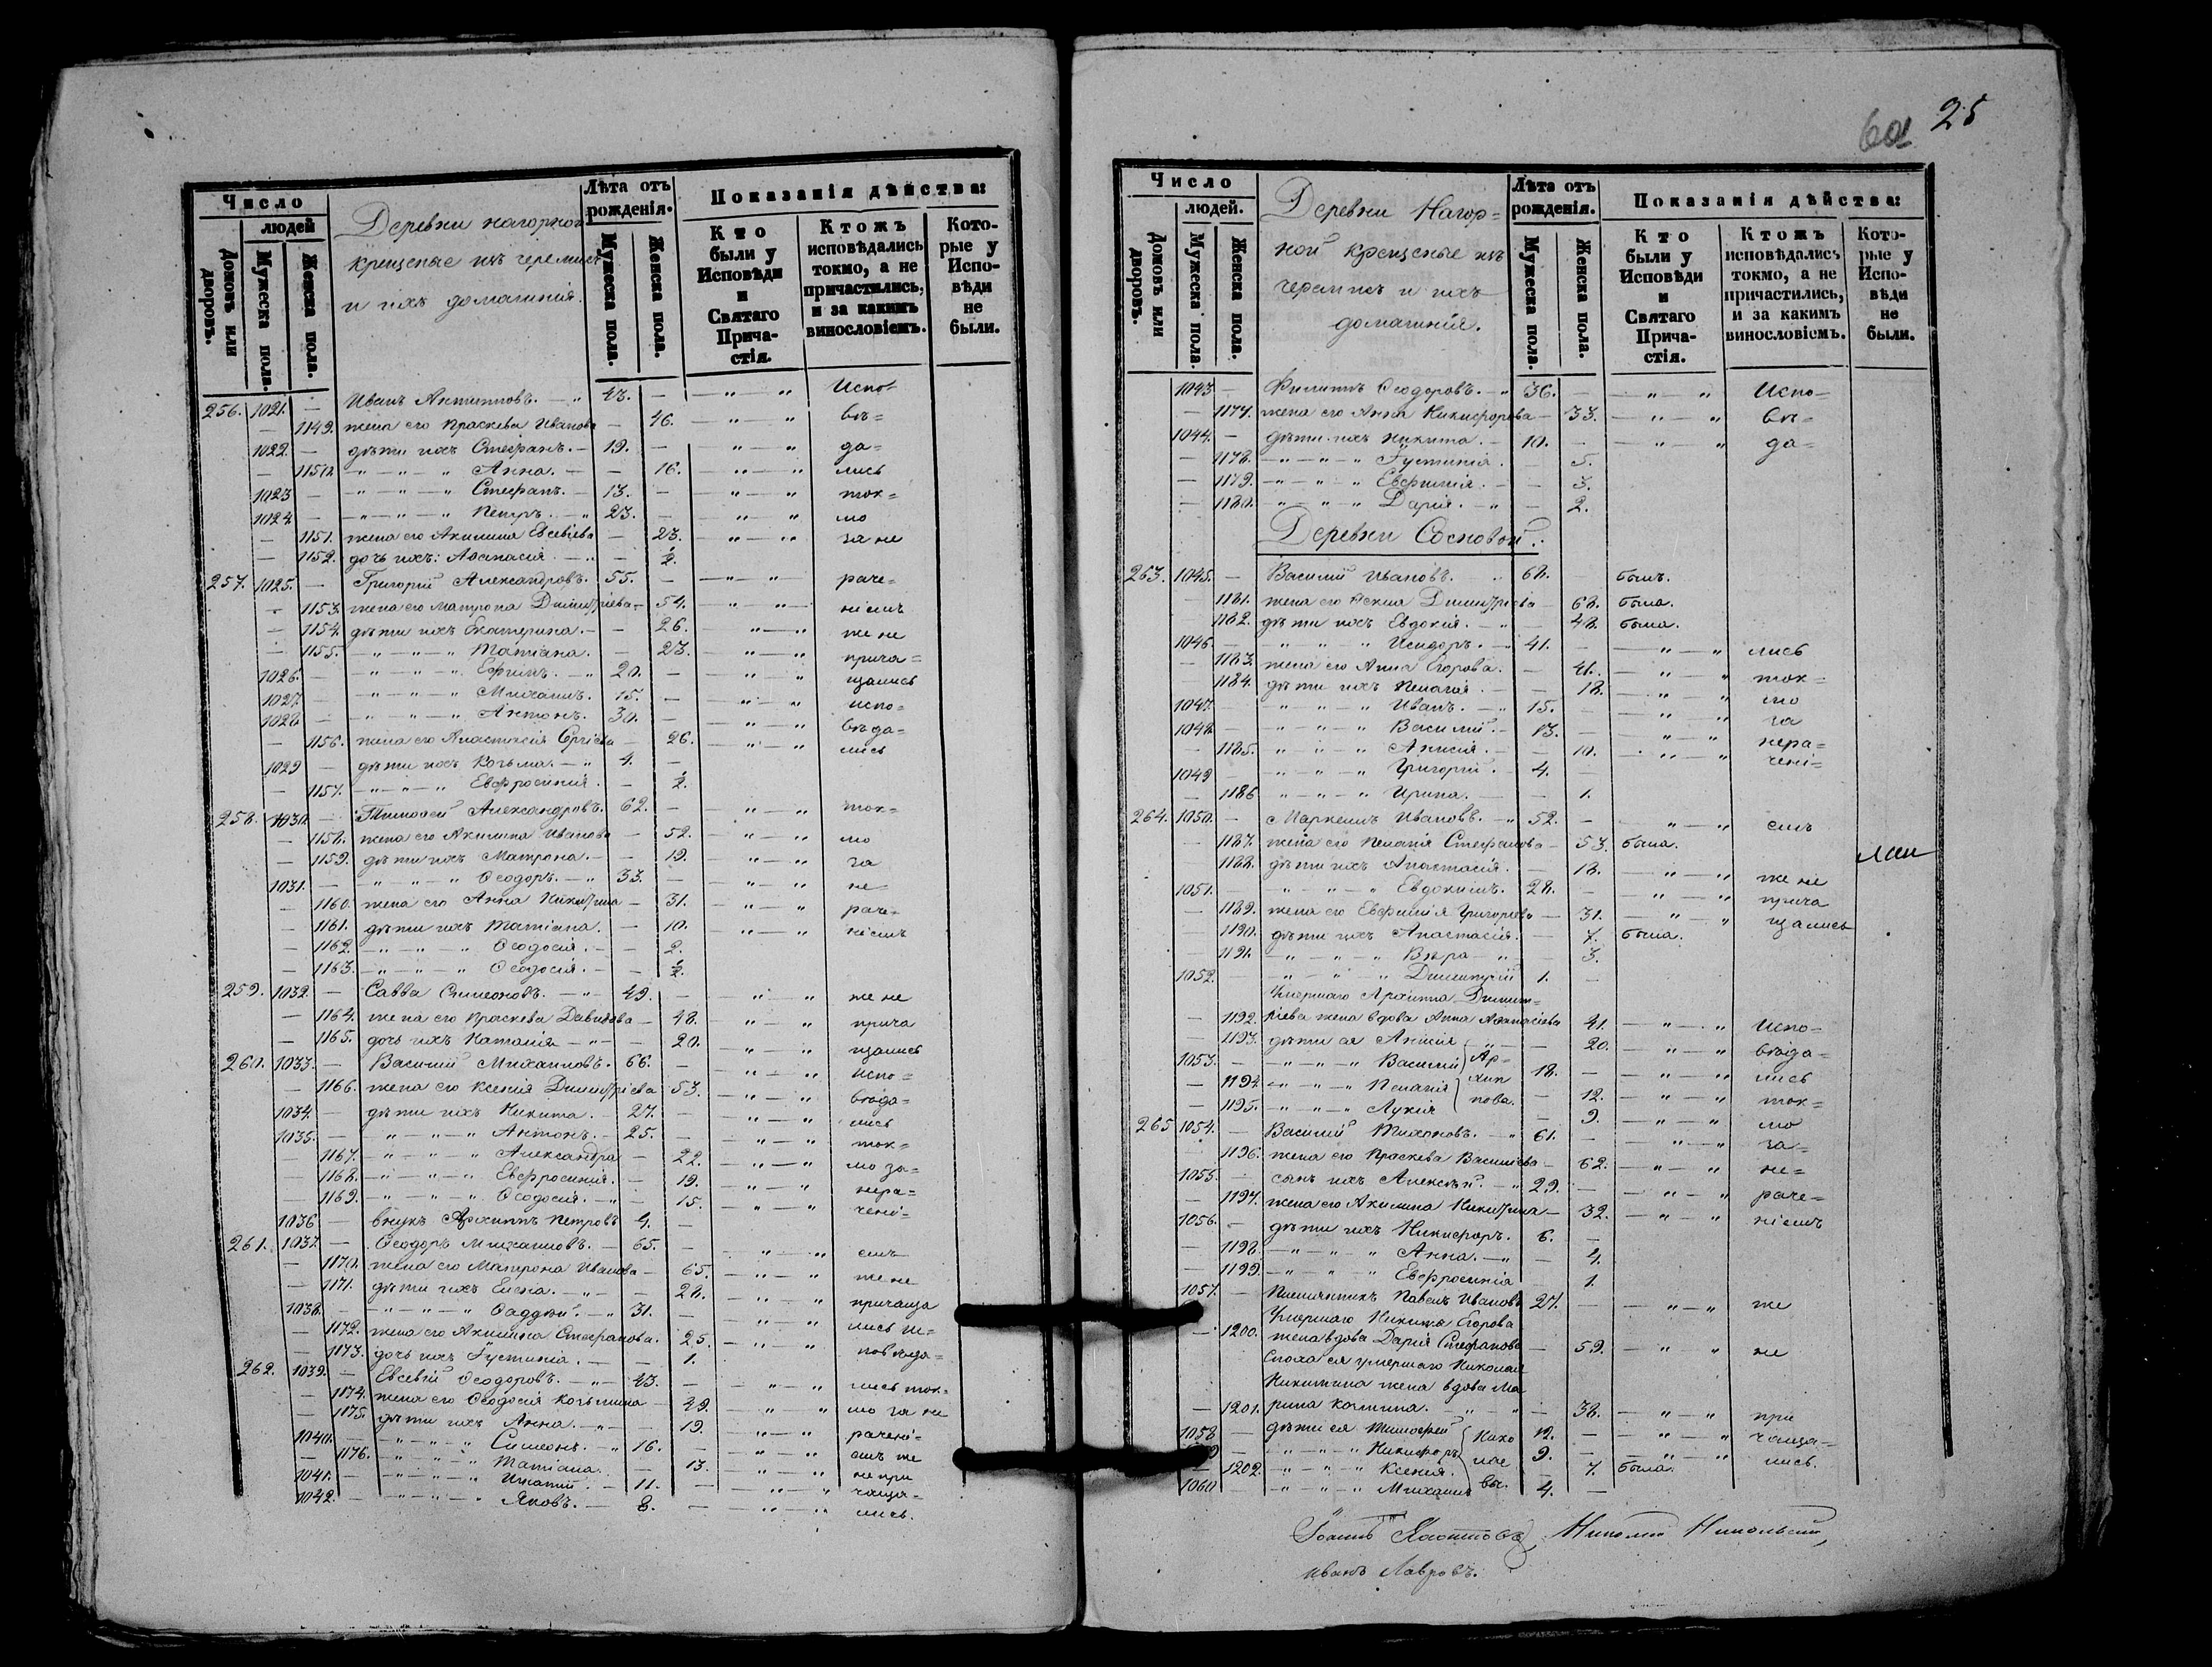 Число
людей
Домовъ или дворовъ.
Мужеска пола.
Женска пола.
Деревни нагорной
крещеные изъ черемисъ
и ихъ домашнія.
Лѣта отъ рожденія.
Мужеска пола.
Женска пола.
Показанія дѣйства:
Кто были у Исповѣди и Святаго Причастія.
Ктожъ исповѣдались токмо, а не причастились, и за какимъ винословіемъ.
Которые у Исповѣди не были.
256. 1021. — Иванъ Антиповъ. — „ 43. — — „ — „ Испо=
— 1149. жена его Праскева Иванова — 46. — „ — „ вѣ=
1022. — дѣти ихъ Стефанъ. — 19. — „ — „ да=
— 1150. — „ — „ — „ Анна. — — 16. „ — „ лись
1023 — — „ — „ — „ Стефанъ. — 13. — „ — „ ток=
1024. — — „ — „ — „ Петръ. — „ 23. — „ — „ мо
— 1151. жена его Акилина Евсевіева — 23. — „ — „ за не
— 1152. дочь ихъ: Аѳанасія. — „ — ½.
257. 1025. — Григорій Александровъ. 55. — — „ — „ раче=
— 1153. жена его Матрона Димитріева — 54. — „ — „ — ніемъ
— 1154. дѣти ихъ Екатерина. — — 26. „ — „ же не
— 1155. — „ — „ — „ Татіана. — 23. „ — „ прича=
1026. — — „ — „ — „ Ефимъ. — „ 20. — „ „ щались
1027. — „ — „ — „ Михаилъ. 15. — „ — „ испо=
1028. — „ — „ — „ Антонъ. 30. — — „ — „ вѣда=
— 1156. жена его Анастасія Сергіева — 26. — „ — „ лись
1029 — дѣти ихъ Козьма. — „ 4. —
— 1157. — „ — „ — „ Евфросинія. — ½.
258. 1030. — Тимоѳей Александровъ. 62. — — „ — „ ток=
— 1158. жена его Акилина Иванова — 52. — „ — „ мо
— 1159. дѣти ихъ Матрона. — — 19. — „ — „ за
1031. — — „ — „ — „ Ѳеодоръ. — „ 33. — — „ — „ не=
— 1160. жена его Анна Никитина — 31. — „ — „ раче=
— 1161. дѣти ихъ Татіана. — 10. — „ — „ ніемъ
— 1162. — „ — „ — „ Ѳеодосія. — — 2.
— 1163. — „ — „ — „ Ѳеодосія. — — ½.
259. 1032. — Савва Симеоновъ. — „ 49. — — „ — „ же не
— 1164. жена его Праскева Давидова — 48. — „ — „ прича
— 1165. дочь ихъ Наталія — „ — — 20. — „ — „ щались
260. 1033. — Василий Михаиловъ. 66. — — „ — „ испо=
— 1166. жена его Ксенія Димитріева 53. — „ — „ вѣда=
1034. — дѣти ихъ Никита. — 27. — — „ — „ лись
1035. — „ — „ — „ Антонъ. — 25. — — „ — „ ток=
— 1167. — „ — „ — „ Александра — 22. — „ — „ мо за=
— 1168. — „ — „ — „ Евфросинія. — 19. — „ — „ нера=
— 1169. — „ — „ — „ Ѳеодосія. — „ — 15. — „ — „ чені=
1036 — внукъ Архиппъ Петровъ 4. —
261. 1037. — Ѳеодоръ Михаиловъ. — 65. — „ — „ емъ
— 1170. жена его Матрона Иванова — 65. — „ — „ же не
— 1171. дѣти ихъ Елена. — „ — — 28. — „ — „ причаща
1038. — — „ — „ — „ Ѳаддей. — „ 31. — — „ — „ лись ис=
— 1172. жена его Акилина Стефанова. 25. — „ — „ повѣда=
— 1173. дочь ихъ Густинія. — — 1.
262. 1039. — Евсевій Ѳеодоровъ. — „ 43. — — „ — „ лись ток=
— 1174. жена его Ѳеодосія Козьмина — 49. — „ — „ мо за не
— 1175. дѣти ихъ Анна. — „ — 19. — „ — „ рачені=
1040. — — „ — „ — „ Симеонъ. — „ 16. — — „ — „ емъ же
— 1176. — „ — „ — „ Татіана. — 13. — „ — „ не при
1041. — — „ — „ — „ Игнатій. — 11. — — „ — „ чаща=
1042. — — „ — „ — „ Яковъ. — 8. — — „ — „ лись.
25
Число
людей.
Домовъ или дворовъ.
Мужеска пола
Женска пола.
Деревни Нагор=
ной крещеные изъ
черемисъ и ихъ
домашнія.
Лѣта отъ рожденія.
Мужеска пола.
Женска пола.
Показанія дѣйства:
Кто были у Исповѣди и Святаго Причастія.
Ктожъ исповѣдались токмо, а не причастились, и за какимъ винословіемъ.
Которые у Исповѣди не были.
1043. — Филиппъ Ѳеодоровъ. — „ 36. — — „ — „ Испо—
— 1177. жена его Анна Никифорова — 33. — „ — „ вѣ=
1044. — дѣти ихъ Никита. — 10. — — „ „ да=
— 1178. — „ — „ — „ Густинія. — 5.
— 1179. — „ — „ — „ Евфимія. — — 3.
— 1180. — „ — „ — „ Дарія. — „ — 2.
Деревни Сосновой.
263. 1045. — Василій Ивановъ. — „ 68. — былъ.
— 1181. жена его Димитріева — 68. была.
1182. дѣти ихъ Евдокія. — „ — 48. была.
1046 — — „ — „ — „ Исидоръ. — „ 41. — — „ — „ лись
— 1183. жена его Анна Егорова. — 41. — „ — „ ток=
1184. дѣти ихъ Пелагія. — — 18. — „ — „ мо
1047. — „ — „ — „ Иванъ. — „ 15. — — „ — „ за
1048. — — „ — „ — „ Василій. — 13. — — „ — „ нера=
— 1185. — „ — „ — „ Анисія. — — 10. — „ — „ чені=
1049 — — „ — „ — „ Григорій. — 4. —
— 1186 — „ — „ — „ Ирина. — — 1.
264. 1050. — Маркеллъ Ивановъ. — „ 52. — — „ — „ емъ
— 1187. жена его Пелагія Стефанова — 53. была.
1188. дѣти ихъ Анастасія. — 18. — „ — „ же не
1051. — — „ — „ — „ Евдокимъ. — 28. — — „ — „ прича
— 1189. жена его Евфимія Григорьева — 31. — „ — „ щались
— 1190. дѣти ихъ Анастасія. — 7. была.
— 1191. — „ — „ — „ Вѣра — „ — 3.
1052. — „ — „ — „ Димитрій 1. —
Умершаго Архиппа Димит=
— 1192. ріева жена вдова Анна Аѳанасіева 41. — „ — „ Испо=
— 1193. дѣти ея Анисія — „ — — 20. — „ — „ вѣда=
1053. — — „ — „ — „ Василій Ар= 18. — — „ — „ лись
— 1194. — „ — „ — „ Пелагія хип — 12. — „ — „ ток=
— 1195. — „ — „ — „ Лукія пова. — 9. — „ — „ мо
265 1054. — Василий Тихоновъ. — „ 61. — — „ — „ за=
— 1196. жена его Праскева Василіева — 62. — „ — „ не=
1055. — сынъ ихъ Алексѣй. — „ 29. — — „ — „ раче=
— 1197. жена его Акилина Никитина — 32. — „ — „ ніемъ
1056. — дѣти ихъ Никифоръ. 6. —
— 1198. — „ — „ — „ Анна. — „ — 4.
— 1199. — „ — „ — „ Евфросинія — 1.
1057. — Племянникъ Павелъ Ивановъ 27. — — „ — „ же
Умершаго Никиты Егорова
— 1200. жена вдова Дарія Стефанова — 59. — „ — „ не
Сноха ея умершаго Николая
Никитина жена вдова Ма
— 1201. рина — „ — „ — 38. — „ — „ при
1058 — дѣти ея Тимоѳей Нико 12. — — „ — „ чаща=
— „ — „ — „ Никифоръ лае 9. — — „ — „ лись.
— 1202. — „ — „ — „ Ксенія. вы. — 7. была.
1060 — — „ — „ — „ Михаилъ 4. —
Николай Никольскій,
Иванъ Лавровъ.